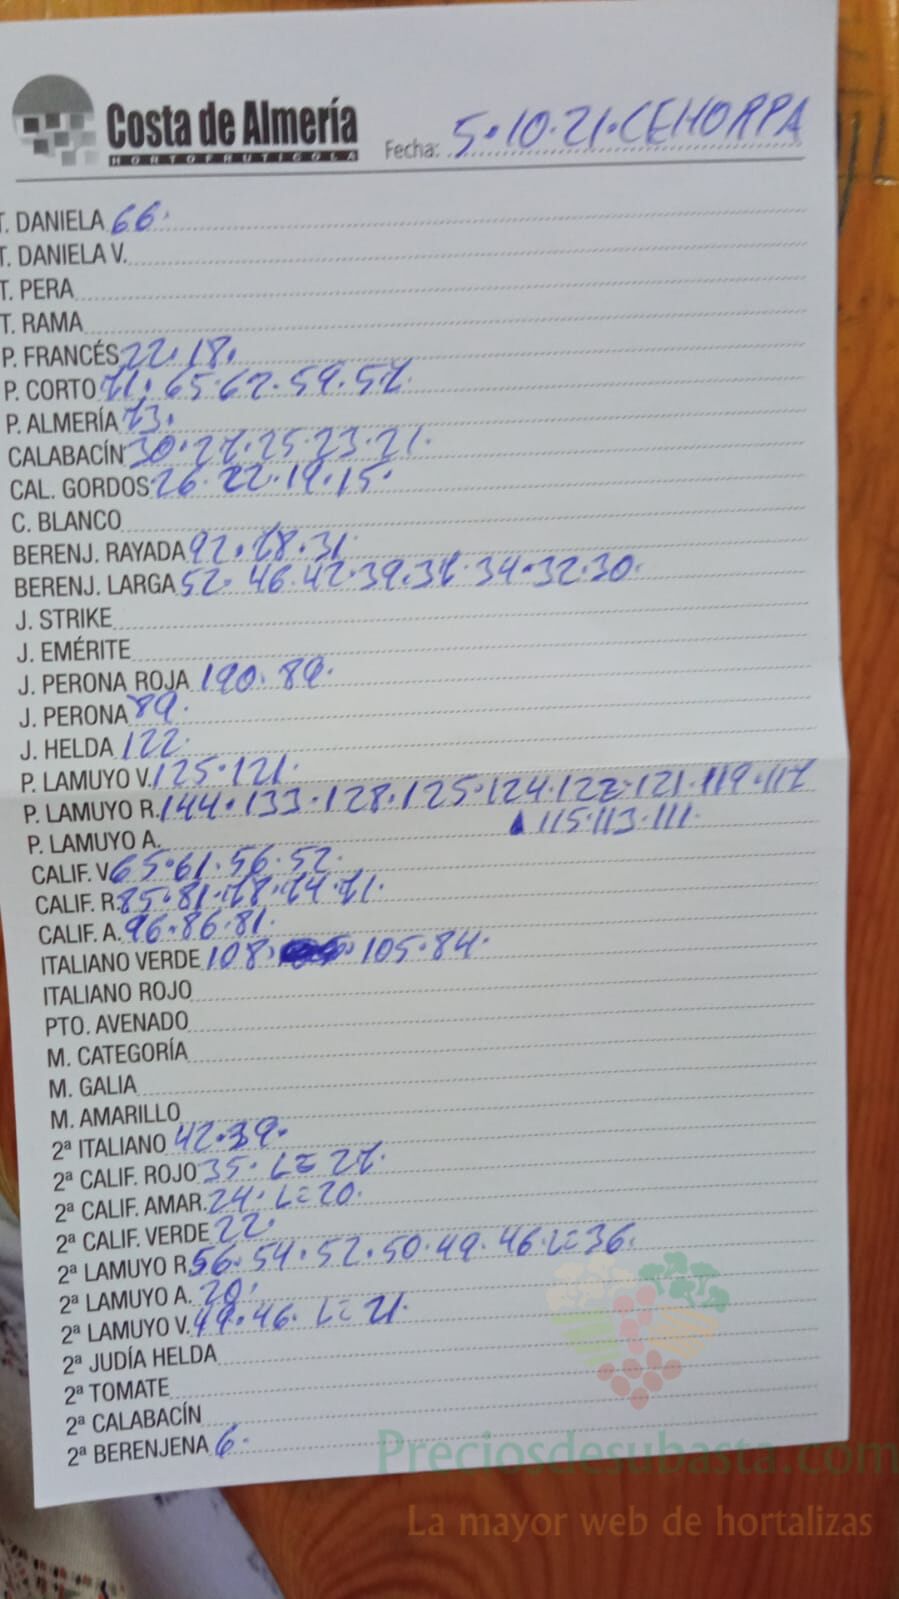 Costa de Almería
HORTOFRUTICOLA
Fecha: 5.10.21.CEHORPA
T. DANIELA 66.
T. DANIELA V.
T. PERA
T. RAMA
P. FRANCÉS 22.18.
P. CORTO 71.65.62.59.57
P. ALMERÍA 73.
CALABACÍN 30.27.25.23.21.
CAL. GORDOS 26.22.19.15.
C. BLANCO
BERENJ. RAYADA 92.78.31.
BERENJ. LARGA 52.46.42.39.37.34.32.30.
J. STRIKE
J. EMÉRITE
J. PERONA ROJA 190.89.
J. PERONA 89.
J. HELDA 122.
P. LAMUYO V. 125.121.
P. LAMUYO R. 144.133.128.125.124.122.121.119.117
115.113.111.
P. LAMUYO A.
CALIF. V. 65.61.56.52.
CALIF. R. 85.81.78.74.71.
CALIF. A. 96.86.81.
ITALIANO VERDE 108. 105.84.
ITALIANO ROJO
PTO. AVENADO
M. CATEGORÍA
M. GALIA
M. AMARILLO
2ª ITALIANO 42.39.
2ª CALIF. ROJO 35. L=27.
2ª CALIF. AMAR. 24. L=20.
2ª CALIF. VERDE 22.
2ª LAMUYO R. 56.54.52.50.49.46.L=36.
2ª LAMUYO A. 20.
2ª LAMUYO V. 49.46. L=21.
2ª JUDÍA HELDA
2ª TOMATE
2ª CALABACÍN
2ª BERENJENA 6.
Preciosdesubasta.com
La mayor web de hortalizas